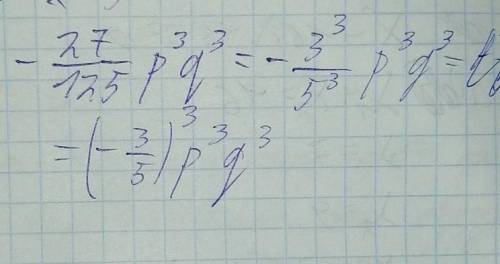 - 27/125 p³q³ = - 3³/5³ p³q³ =
= (- 3/5)³ p³q³